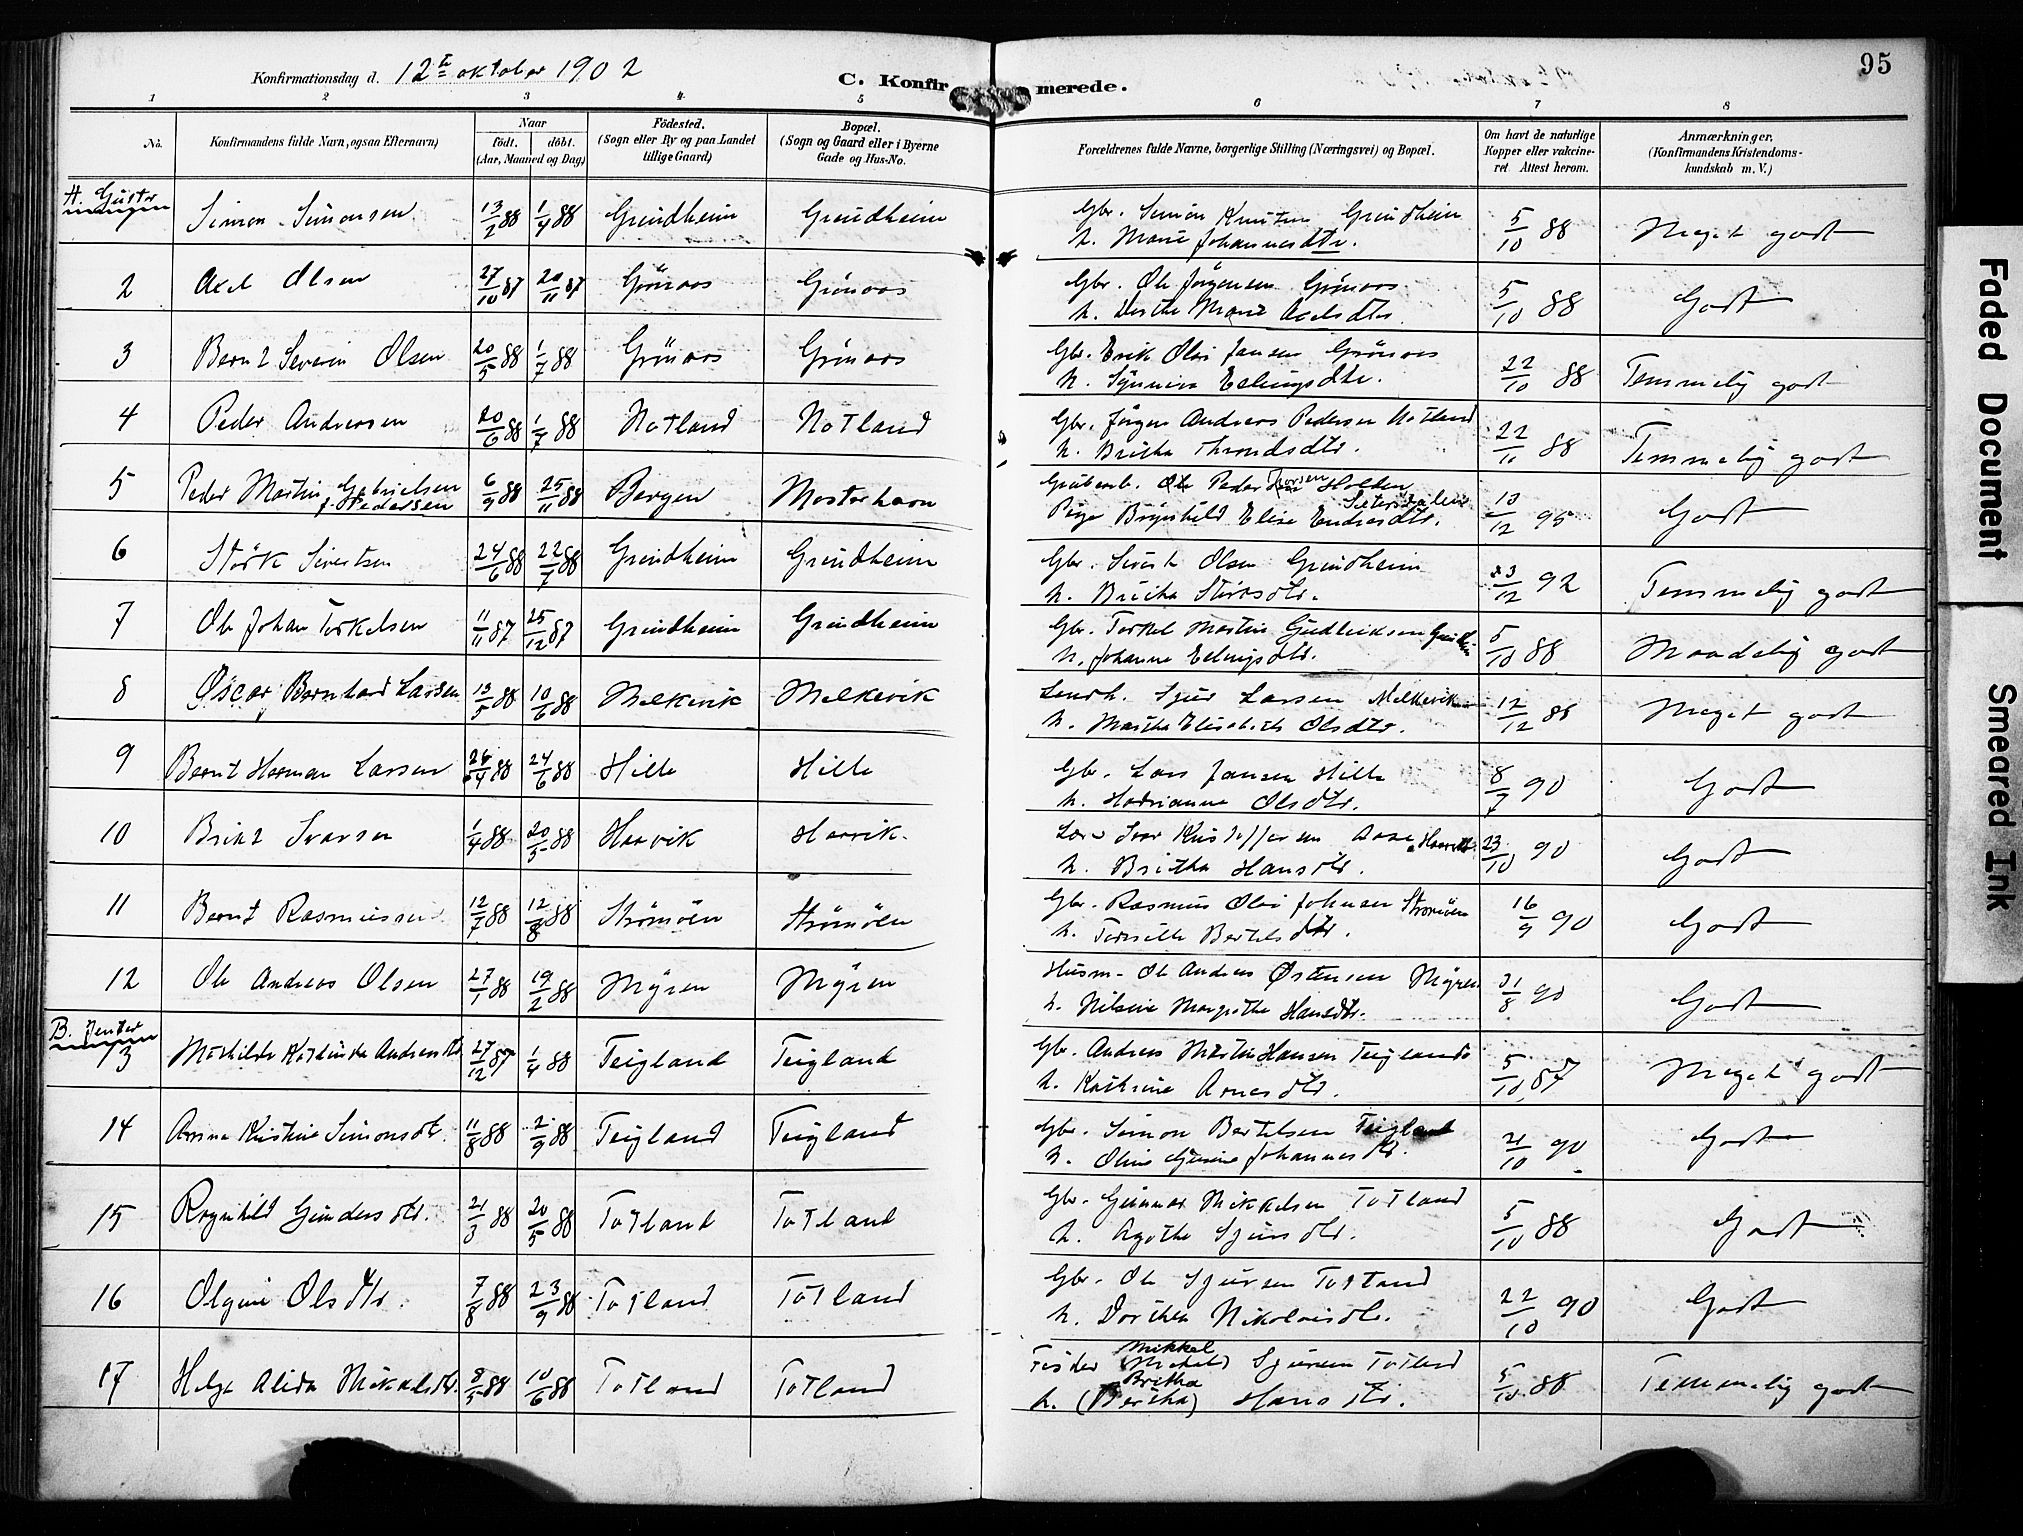 95
Konfirmationsdag d. 12te oktober 1902
C. Konfirmerede.
1 2 3 4 5 6 7 8
No. Konfirmandens fulde Navn, ogsaa Efternavn) Naar født. døbt. (Aar, Maaned og Dag) Fødested. (Sogn eller By og paa Landet tillige Gaard) Bopæl. (Sogn og Gaard eller i Byerne Gade og Hus-No. Forældrenes fulde Navne, borgerlige Stilling (Næringsvei) og Bopæl. Om havt de naturlige Kopper eller vakcineret Attest herom. Anmærkninger. (Konfirmandens Kristendomskundskab m. V.)
A. Gutter
Simon Simonsen 13/2 88 1/4 88 Grindheim Grindheim Gbr. Simon Knutsen Grindheim
h. Marie Johannesdtr. 5/10 88 Meget godt
2 Axel Olsen 27/10 87 20/11 87 Grönaas Grönaas Gbr. Ole Jørgensen Grönaas
h. Dorthe Marie Axelsdtr. 5/10 88 Godt
3 Bernt Severin Olsen 20/5 88 1/7 88 Grönaas Grönaas Gbr. Erik Olai Jansen Grönaas
h. Synneva Erlingsdtr. 22/10 88 Temmelig godt
4 Peder Andersen 20/6 88 1/7 88 Notland Notland Gbr. Jörgen Andreas Pedersen Notland
h. Britha Throndsdtr. 22/10 88 Temmelig godt
5 Peder Martin Gabrielsen
f. Pedersen 6/9 88 25/11 88 Bergen Mosterhavn Peder Holden
Pige Brynhild Elise Endresdtr. 13/12 95 Godt
6 Störk Sivertsen 24/6 88 22/7 88 Grindheim Grindheim Gbr. Sivert Olsen Grindheim
h. Britha Störksdtr. 23/12 92 Temmelig godt
7 Ole Johan Torkelsen 11/11 87 25/12 87 Grindheim Grindheim Gbr. Torkel Martin Gudleiksen
h. Johanne Erlingsdtr. 5/10 88 Maadelig godt
8 Oscar Bernhard Larsen 13/5 88 10/6 88 Melkevik Melkevik Sjur Larsen Melkevik
h. Martha Elisabeth Olsdtr. 12/12 88 Meget godt
9 Bernt Herman Larsen 26/4 88 24/6 88 Hille Hille Gbr. Lars Jansen Hille
h. Hadrianne Olsdtr. 8/7 90 Godt
10 Brikt Ivarsen 1/4 88 20/5 88 Haavik Haavik Ivar Kristoffersen Aase
h. Britha Hansdtr. 23/10 90 Godt
11 Bernt Rasmussen 12/7 88 12/8 88 Strömöen Strömöen Gbr. Rasmus Olai Johnsen Strömöen
h. Tarsille Bertelsdtr. 16/9 90 Godt
12 Ole Andreas Olsen 27/1 88 19/2 88 Myren Myren Husm. Ole Andreas Østensen Myren
h. Nilsine Margrethe Hansdtr. 31/8 90 Godt
B. Jenter
13 Mathilde Kathinka Andersdtr 27/12 87 1/4 88 Teigland Teigland Gbr. Andreas Martin Hansen Teigland
h. Kathrine Arnesdtr. 5/10 87 Meget godt
14 Anna Kristine Simonsdtr. 11/8 88 2/9 88 Teigland Teigland Gbr. Simon Bertelsen Teigland
h. Oline Johannesdtr. 21/10 90 Godt
15 Ragnhild Gundersdtr. 21/3 88 20/5 88 Totland Totland Gbr. Gunnar Mikkelsen Totland
h. Agathe Sjursdtr. 5/10 88 Godt
16 Olgine Olsdtr. 7/8 88 23/9 88 Totland Totland Gbr. Ole Sjursen Totland
h. Dorthea Nikolaisdtr. 22/10 90 Godt
17 Helga Alida Mikalsdtr. 8/5 88 10/6 88 Totland Totland Mikkel
(Michel) Sjursen Totland
Britha
h. (Bertha) Hansdtr. 5/10 88 Temmelig godt
Faded Document
Smeared Ink